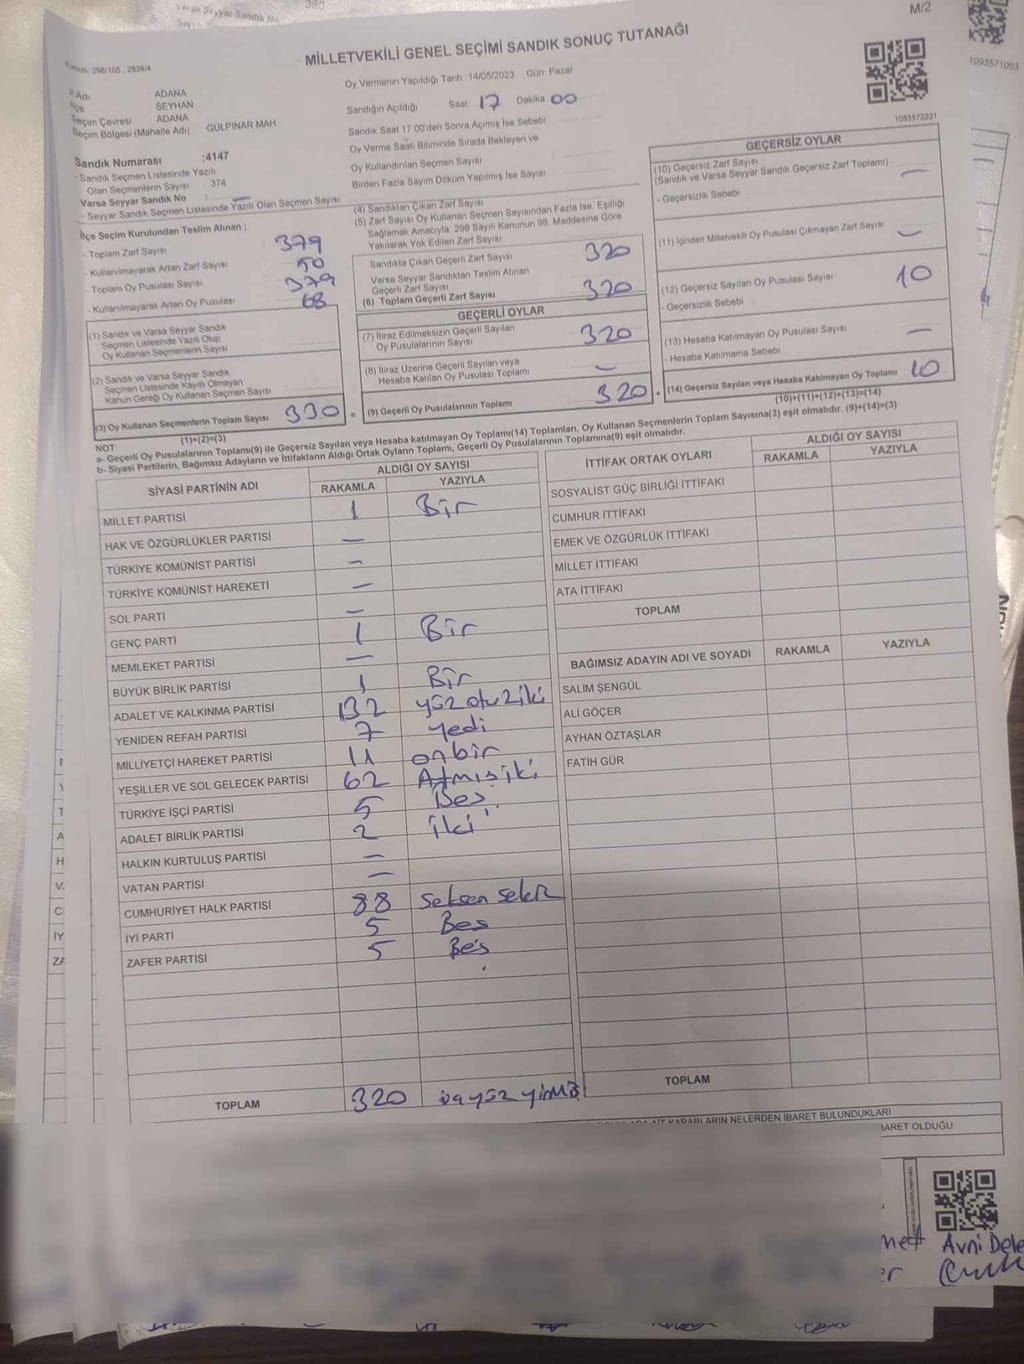 M/2
MİLLETVEKİLİ GENEL SEÇİMİ SANDIK SONUÇ TUTANAĞI
Kanun: 298/105 ; 2839/4
1093571083
İl Adı ADANA
İlçe SEYHAN
Seçim Çevresi ADANA
Seçim Bölgesi (Mahalle Adı) GÜLPINAR MAH.
Sandık Numarası :4147
- Sandık Seçmen Listesinde Yazılı
Olan Seçmenlerin Sayısı : 374
Varsa Seyyar Sandık No : —
- Seyyar Sandık Seçmen Listesinde Yazılı Olan Seçmen Sayısı
Oy Vermenin Yapıldığı Tarih :14/05/2023 Gün: Pazar
Sandığın Açıldığı Saat: 17 Dakika 00
Sandık Saat 17:00'den Sonra Açımış İse Sebebi
Oy Verme Saati Bitiminde Sırada Bekleyen ve
Oy Kullandırılan Seçmen Sayısı
Birden Fazla Sayım Döküm Yapılmış İse Sayısı
1083572221
İlçe Seçim Kurulundan Teslim Alınan ;
- Toplam Zarf Sayısı 379
- Kullanılmayarak Artan Zarf Sayısı 50
- Toplam Oy Pusulası Sayısı 379
- Kullanılmayarak Artan Oy Pusulası 68
(1) Sandık ve Varsa Seyyar Sandık
Seçmen Listesinde Yazılı Olup
Oy Kullanan Seçmenlerin Sayısı
(2) Sandık ve Varsa Seyyar Sandık
Seçmen Listesinde Kayıtlı Olmayan
Kanun Gereği Oy Kullanan Seçmen Sayısı
(3) Oy Kullanan Seçmenlerin Toplam Sayısı 330 =
(1)+(2)=(3)
(4) Sandıktan Çıkan Zarf Sayısı
(5) Zarf Sayısı Oy Kullanan Seçmen Sayısından Fazla İse, Eşitliği
Sağlamak Amacıyla, 298 Sayılı Kanunun 98. Maddesine Göre
Yakılarak Yok Edilen Zarf Sayısı
Sandıkta Çıkan Geçerli Zarf Sayısı 320
Varsa Seyyar Sandıktan Teslim Alınan
Geçerli Zarf Sayısı
(6) Toplam Geçerli Zarf Sayısı 320
GEÇERLİ OYLAR
(7) İtiraz Edilmeksizin Geçerli Sayılan
Oy Pusulalarının Sayısı 320
(8) İtiraz Üzerine Geçerli Sayılan veya
Hesaba Katılan Oy Pusulası Toplamı —
(9) Geçerli Oy Pusulalarının Toplamı 320 +
GEÇERSİZ OYLAR
(10) Geçersiz Zarf Sayısı
(Sandık ve Varsa Seyyar Sandık Geçersiz Zarf Toplamı) —
- Geçersizlik Sebebi
(11) İçinden Milletvekili Oy Pusulası Çıkmayan Zarf Sayısı —
(12) Geçersiz Sayılan Oy Pusulası Sayısı 10
- Geçersizlik Sebebi
(13) Hesaba Katılmayan Oy Pusulası Sayısı —
- Hesaba Katılmama Sebebi
(14) Geçersiz Sayılan veya Hesaba Katılmayan Oy Toplamı 10
(10)+(11)+(12)+(13)=(14)
NOT:
a- Geçerli Oy Pusulalarının Toplamı(9) ile Geçersiz Sayılan veya Hesaba katılmayan Oy Toplamı(14) Toplamları, Oy Kullanan Seçmenlerin Toplam Sayısına(3) eşit olmalıdır. (9)+(14)=(3)
b- Siyasi Partilerin, Bağımsız Adayların ve İttifakların Aldığı Ortak Oyların Toplamı, Geçerli Oy Pusulalarının Toplamına(9) eşit olmalıdır.
SİYASİ PARTİNİN ADI ALDIĞI OY SAYISI
RAKAMLA YAZIYLA
MİLLET PARTİSİ 1 Bir
HAK VE ÖZGÜRLÜKLER PARTİSİ —
TÜRKİYE KOMÜNİST PARTİSİ —
TÜRKİYE KOMÜNİST HAREKETİ —
SOL PARTİ —
GENÇ PARTİ 1 Bir
MEMLEKET PARTİSİ —
BÜYÜK BİRLİK PARTİSİ 1 Bir
ADALET VE KALKINMA PARTİSİ 132 yüz otuz iki
YENİDEN REFAH PARTİSİ 7 yedi
MİLLİYETÇİ HAREKET PARTİSİ 11 onbir
YEŞİLLER VE SOL GELECEK PARTİSİ 62 Atmış iki
TÜRKİYE İŞÇİ PARTİSİ 5 Beş
ADALET BİRLİK PARTİSİ 2 iki
HALKIN KURTULUŞ PARTİSİ —
VATAN PARTİSİ —
CUMHURİYET HALK PARTİSİ 88 seksen sekiz
İYİ PARTİ 5 Bes
ZAFER PARTİSİ 5 Beş
TOPLAM 320
İTTİFAK ORTAK OYLARI ALDIĞI OY SAYISI
RAKAMLA YAZIYLA
SOSYALİST GÜÇ BİRLİĞİ İTTİFAKI
CUMHUR İTTİFAKI
EMEK VE ÖZGÜRLÜK İTTİFAKI
MİLLET İTTİFAKI
ATA İTTİFAKI
TOPLAM
BAĞIMSIZ ADAYIN ADI VE SOYADI RAKAMLA YAZIYLA
SALİM ŞENGÜL
ALİ GÖÇER
AYHAN ÖZTAŞLAR
FATİH GÜR
TOPLAM
KARARLARIN NELERDEN İBARET BULUNDUKLARI
İBARET OLDUĞU
Avni